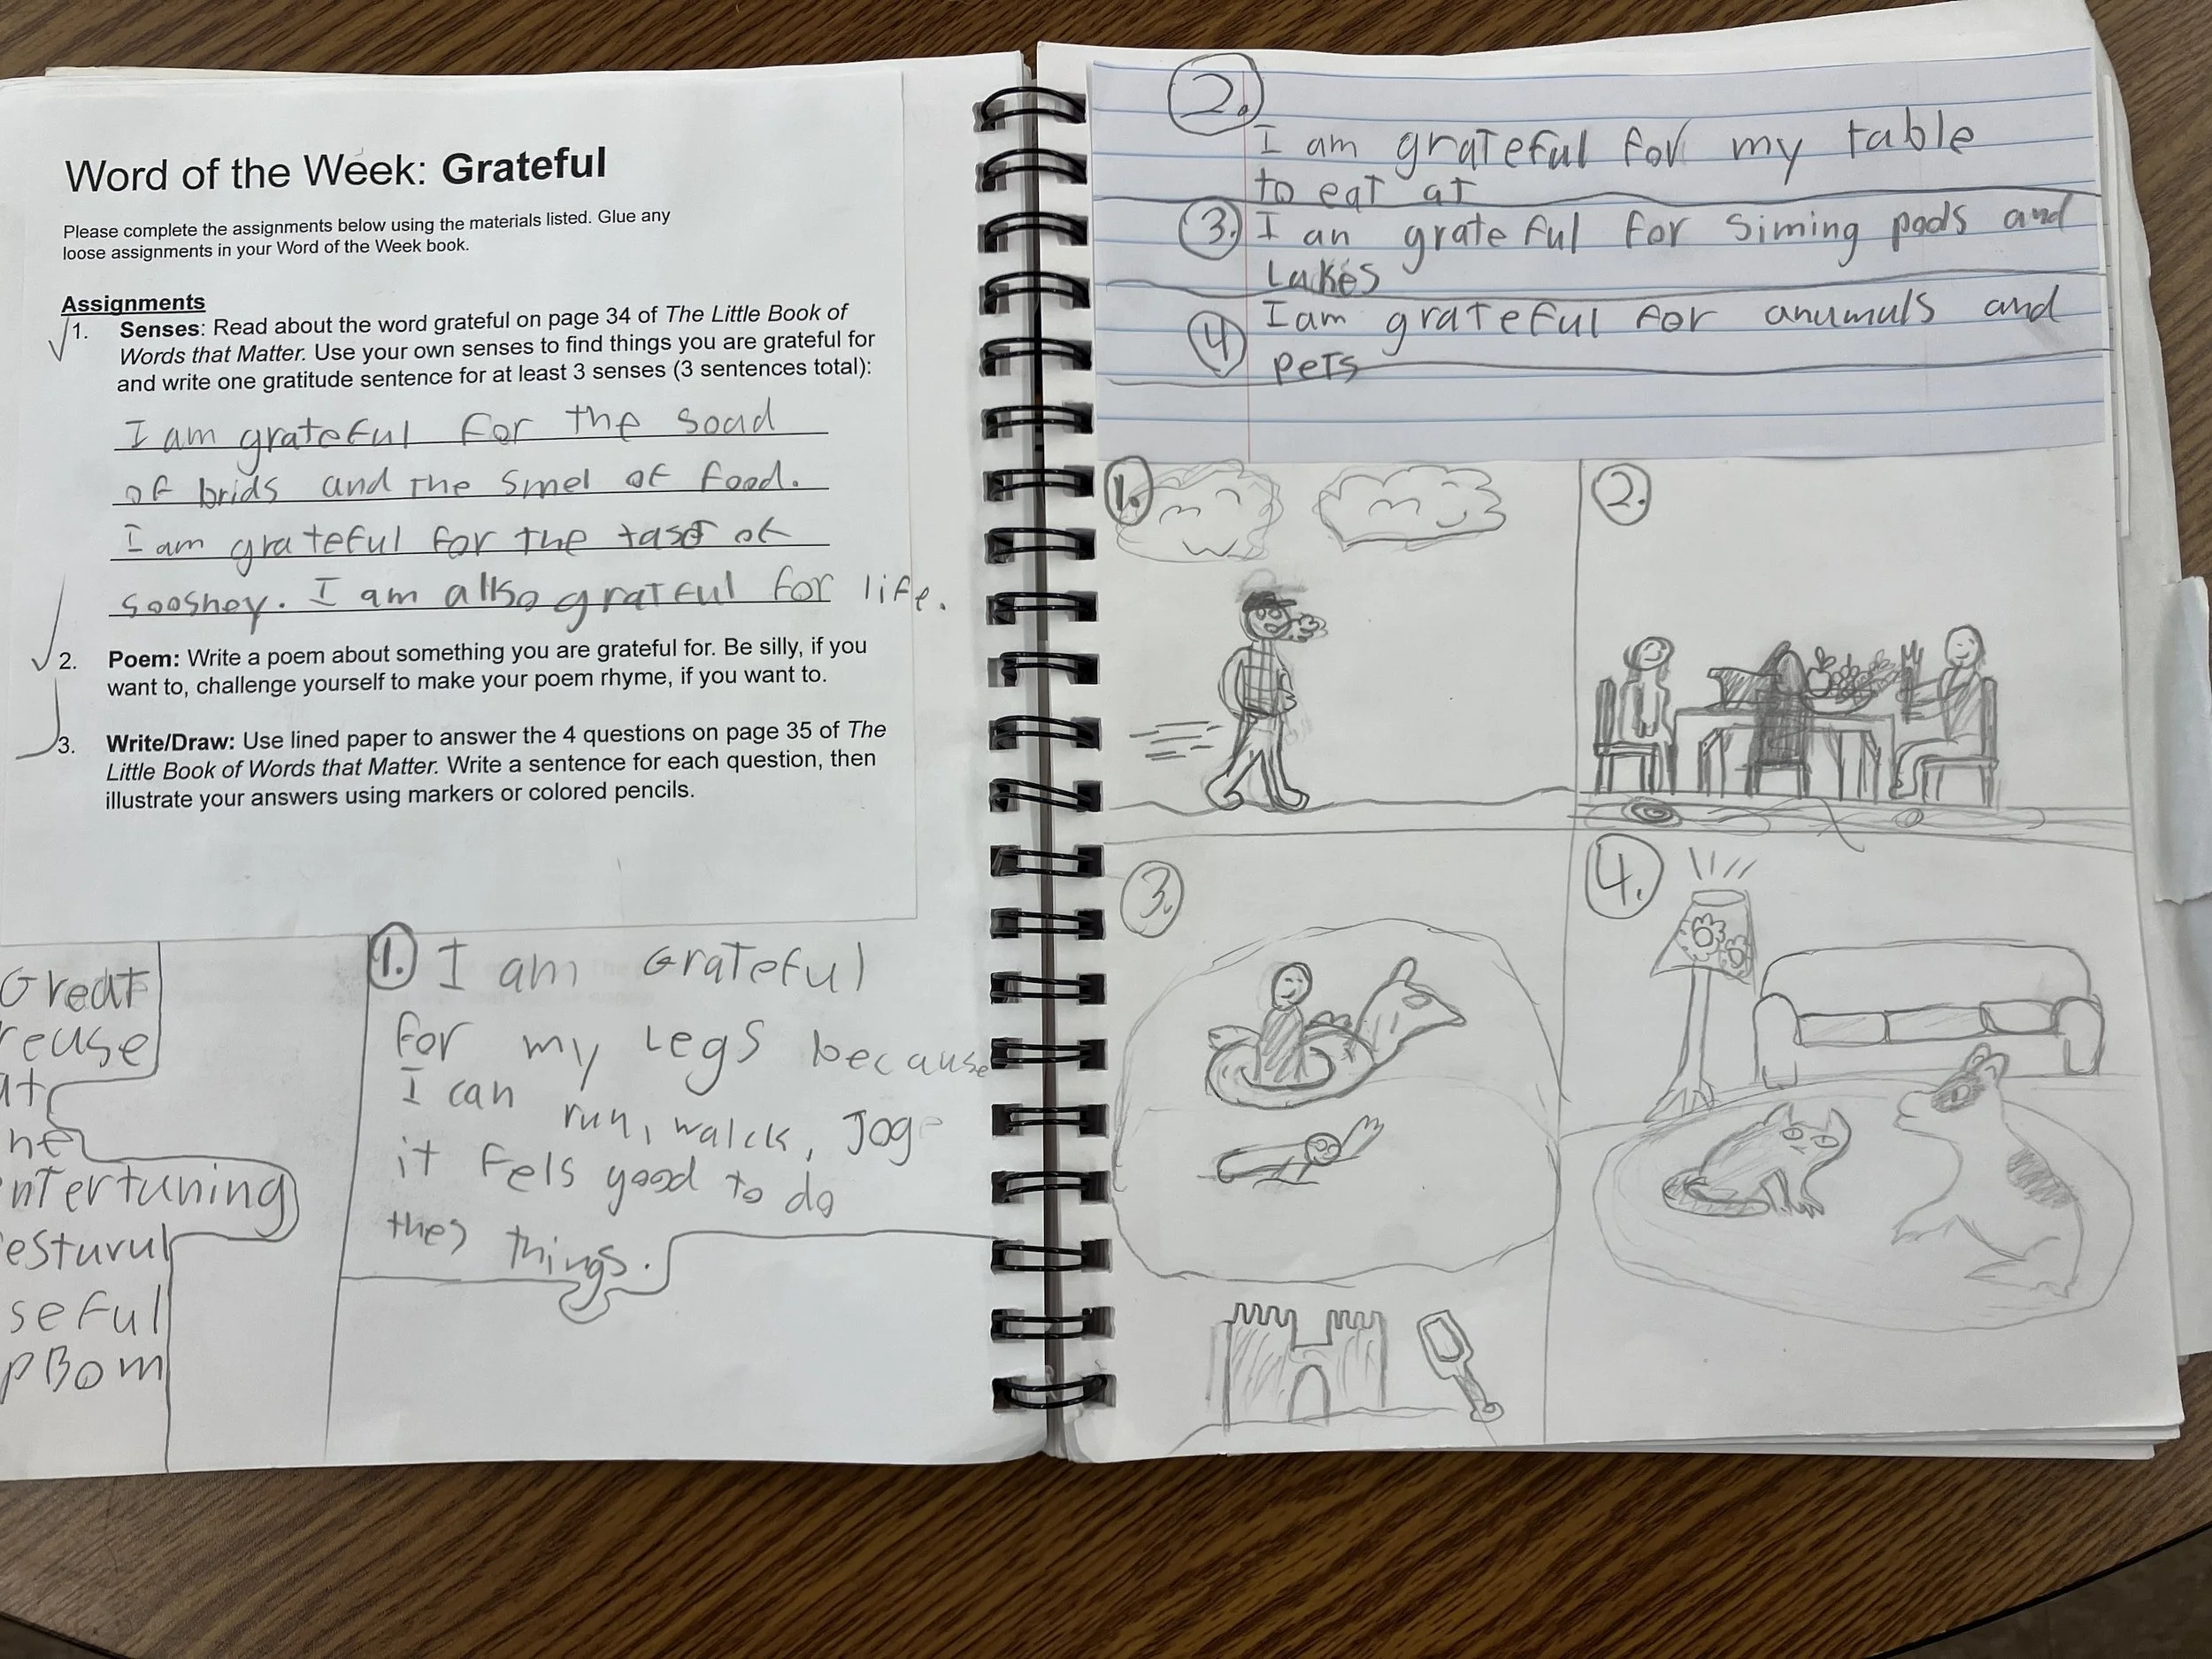 Word of the Week: Grateful
Please complete the assignments below using the materials listed. Glue any
loose assignments in your Word of the Week book.
Assignments
1. Senses: Read about the word grateful on page 34 of The Little Book of
Words that Matter. Use your own senses to find things you are grateful for
and write one gratitude sentence for at least 3 senses (3 sentences total):
I am grateful for the soad
of brids and the smel of food.
I am grateful for the tast of
sooshey. I am allso grateful for life.
2. Poem: Write a poem about something you are grateful for. Be silly, if you
want to, challenge yourself to make your poem rhyme, if you want to.
3. Write/Draw: Use lined paper to answer the 4 questions on page 35 of The
Little Book of Words that Matter. Write a sentence for each question, then
illustrate your answers using markers or colored pencils.
Great
reuse
at
her
ntertuning
esturul
seful
pBom
1. I am Grateful
for my Legs because
I can run, walck, Jog
it fels good to do
thes things.
2.
I am grateful for my table
to eat at
3. I an grateful for siming pools and
Lakes
4 I am grateful for anumuls and
pets
1.
2.
3.
4.